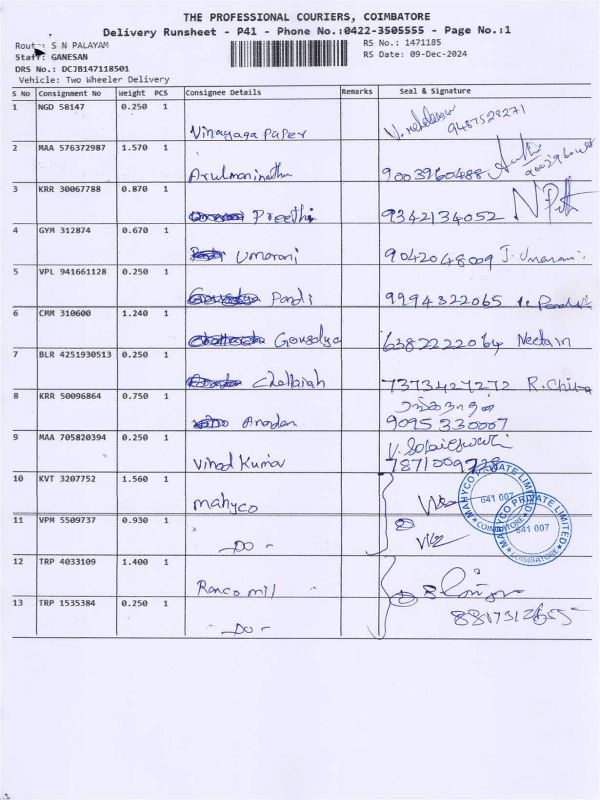 THE PROFESSIONAL COURIERS, COIMBATORE
Delivery Runsheet - P41 - Phone No.:0422-3505555 - Page No.:1
Route: S N PALAYAM
RS No.: 1471185
Staff: GANESAN
RS Date: 09-Dec-2024
DRS No.: DCJB147118501
Vehicle: Two Wheeler Delivery
S No Consignment No Weight PCS Consignee Details Remarks Seal & Signature
1 NGD 58147 0.250 1 Vinayaga Paper 9487529271
2 MAA 576372987 1.570 1 Arulmaninathu 9003960488
3 KRR 30067788 0.870 1 Preethi 9342134052
4 GYM 312874 0.670 1 Umarani 9042048009 J. Umarani
5 VPL 941661128 0.250 1 Pandi 9994322065
6 CMM 310600 1.240 1 Gousalya 6382222064
7 BLR 4251930513 0.250 1 Chellaiah 7373427272
8 KRR 50096864 0.750 1 Anandan ரங்கநாதன் 9095330007
9 MAA 705820394 0.250 1 Vinod Kumar
10 KVT 3207752 1.560 1 Mahyco
11 VPM 5509737 0.930 1 -Do-
MAHYCO PRIVATE LIMITED
641 007
COIMBATORE
MAHYCO PRIVATE LIMITED
641 007
COIMBATORE
12 TRP 4033109 1.400 1 Ranco mil
13 TRP 1535384 0.250 1 -Do-